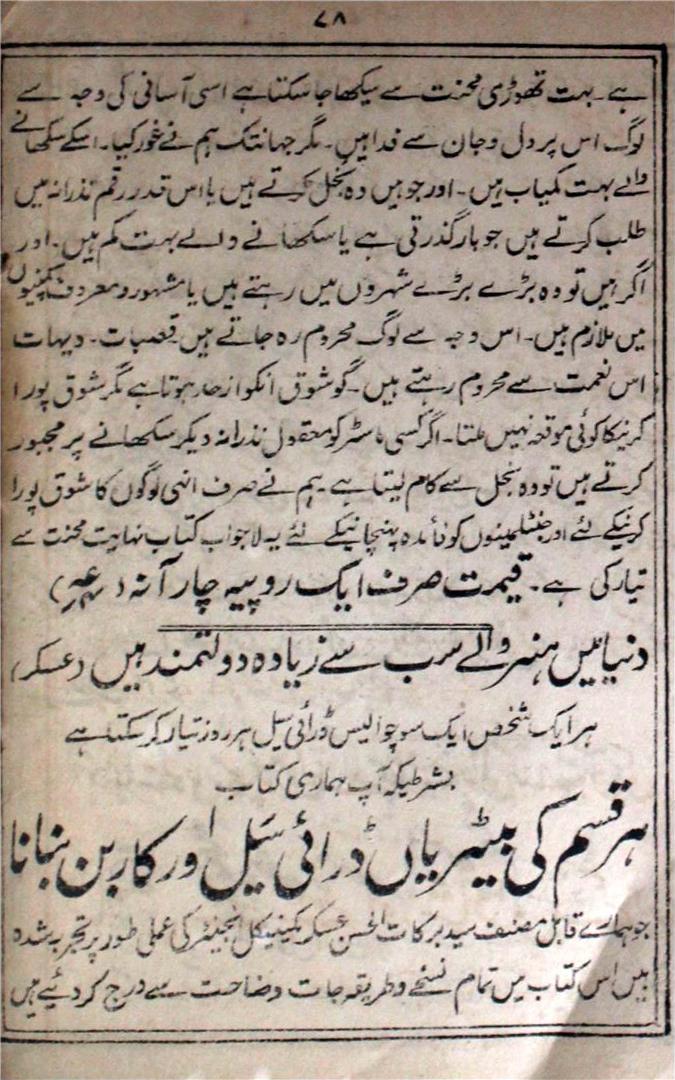 ۷۸
ہے۔ بہت تھوڑی محنت سے سیکھا جا سکتا ہے اسی آسانی کی وجہ سے
لوگ اس پر دل و جان سے فدا ہیں۔ مگر جہانتک ہم نے غور کیا۔ اسکے سکھانے
والے بہت کمیاب ہیں۔ اور جو ہیں وہ بخل کرتے ہیں یا اس قدر رقم نذرانہ میں
طلب کرتے ہیں جو بار گذرتی ہے یا سکھانے والے بہت کم ہیں۔ اور
اگر ہیں تو وہ بڑے بڑے شہروں میں رہتے ہیں یا مشہور و معروف کمپنیوں
میں ملازم ہیں۔ اس وجہ سے لوگ محروم رہ جاتے ہیں۔ قصبات۔ دیہات
اس نعمت سے محروم رہتے ہیں۔ گو شوق انکو از حد ہوتا ہے مگر شوق پورا
کرنیکا کوئی موقعہ نہیں ملتا۔ اگر کسی ماسٹر کو معقول نذرانہ دیکر سکھانے پر مجبور
کرتے ہیں تو وہ بخل سے کام لیتا ہے۔ ہم نے صرف انہی لوگوں کا شوق پورا
کرنیکے لئے اور جنٹلمینوں کو فائدہ پہنچانیکے لئے یہ لاجواب کتاب نہایت محنت سے
تیار کی ہے۔ قیمت صرف ایک روپیہ چار آنہ
دنیا میں ہنر والے سب سے زیادہ دولتمند ہیں (عسکر)
ہر ایک شخص ایک سو چوالیس ڈرائی سیل ہر روز تیار کر سکتا ہے
بشرطیکہ آپ ہماری کتاب
ہر قسم کی بیٹریاں ڈرائی سیل اور کاربن بنانا
جو ہمارے قابل مصنف سید برکات الحسن عسکر مکینیکل انجینئر کی عملی طور پر تجربہ شدہ
ہیں اس کتاب میں تمام نسخے و طریقہ جات وضاحت سے درج کر دئیے ہیں